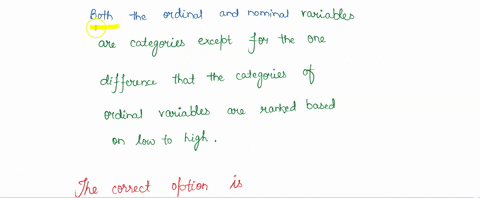 Both the ordinal and nominal variables
are categories except for the one
difference that the categories of
ordinal variables are ranked based
on low to high.
The correct option is